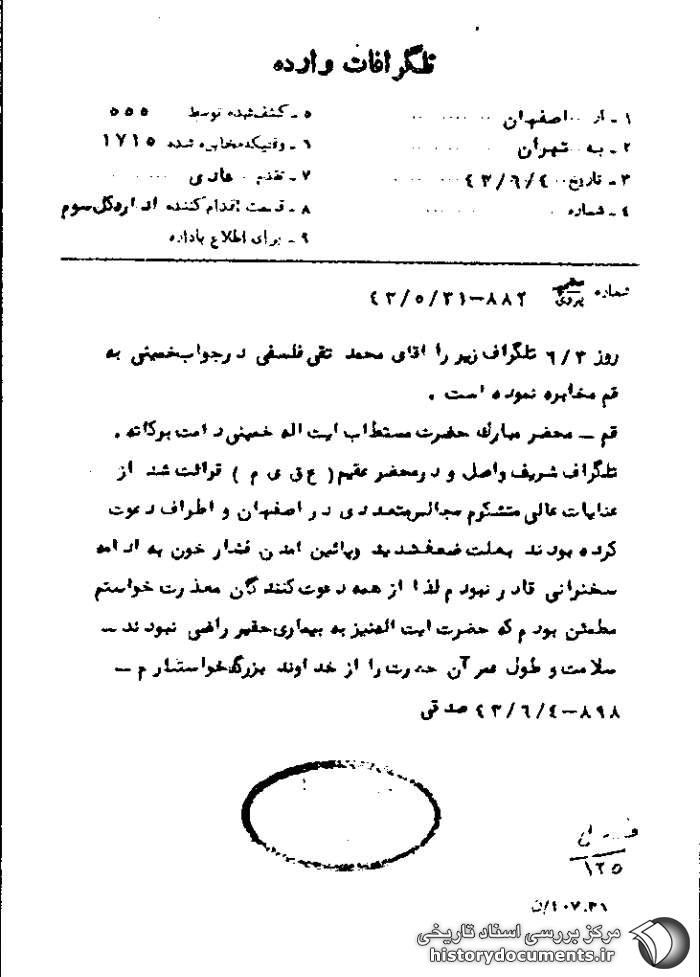 تلگرافات وارده
۱ـ از اصفهان
۲ـ به تهران
۳ـ تاریخ ۴۳/۶/۴
۴ـ شماره
۵ـ کشف شده توسط ۵۵۵
۶ـ وقتیکه مخابره شده ۱۷۱۵
۷ـ تقدم عادی
۸ـ قسمت اقدام کننده اداره کل سوم
۹ـ برای اطلاع باداره
شماره ۸۸۲ـ۴۳/۵/۳۱
روز ۶/۳ تلگراف زیر را اقای محمد تقی فلسفی در جواب خمینی به
قم مخابره نموده است .
قم ـ محضر مبارک حضرت مستطاب ایت اله خمینی دامت برکاته .
تلگراف شریف واصل و در محضر عقیم ( ع ق ی م ) قرائت شد از
عنایات عالی متشکرم مجالس متعددی در اصفهان و اطراف دعوت
کرده بودند بعلت ضعف شدید وپائین امدن فشار خون به ادامه
سخنرانی قادر نبودم لذا از همه دعوت کنندگان معذرت خواستم
مطمئن بودم که حضرت ایت اله نیز به بیماری حقیر راضی نبودند ـ
سلامت و طول عمر آن حضرت را از خداوند بزرگ خواستارم ـ
۸۹۸ـ۴۳/۶/۴ صدقی
۱۲۵
مرکز بررسی اسناد تاریخی
historydocuments.ir